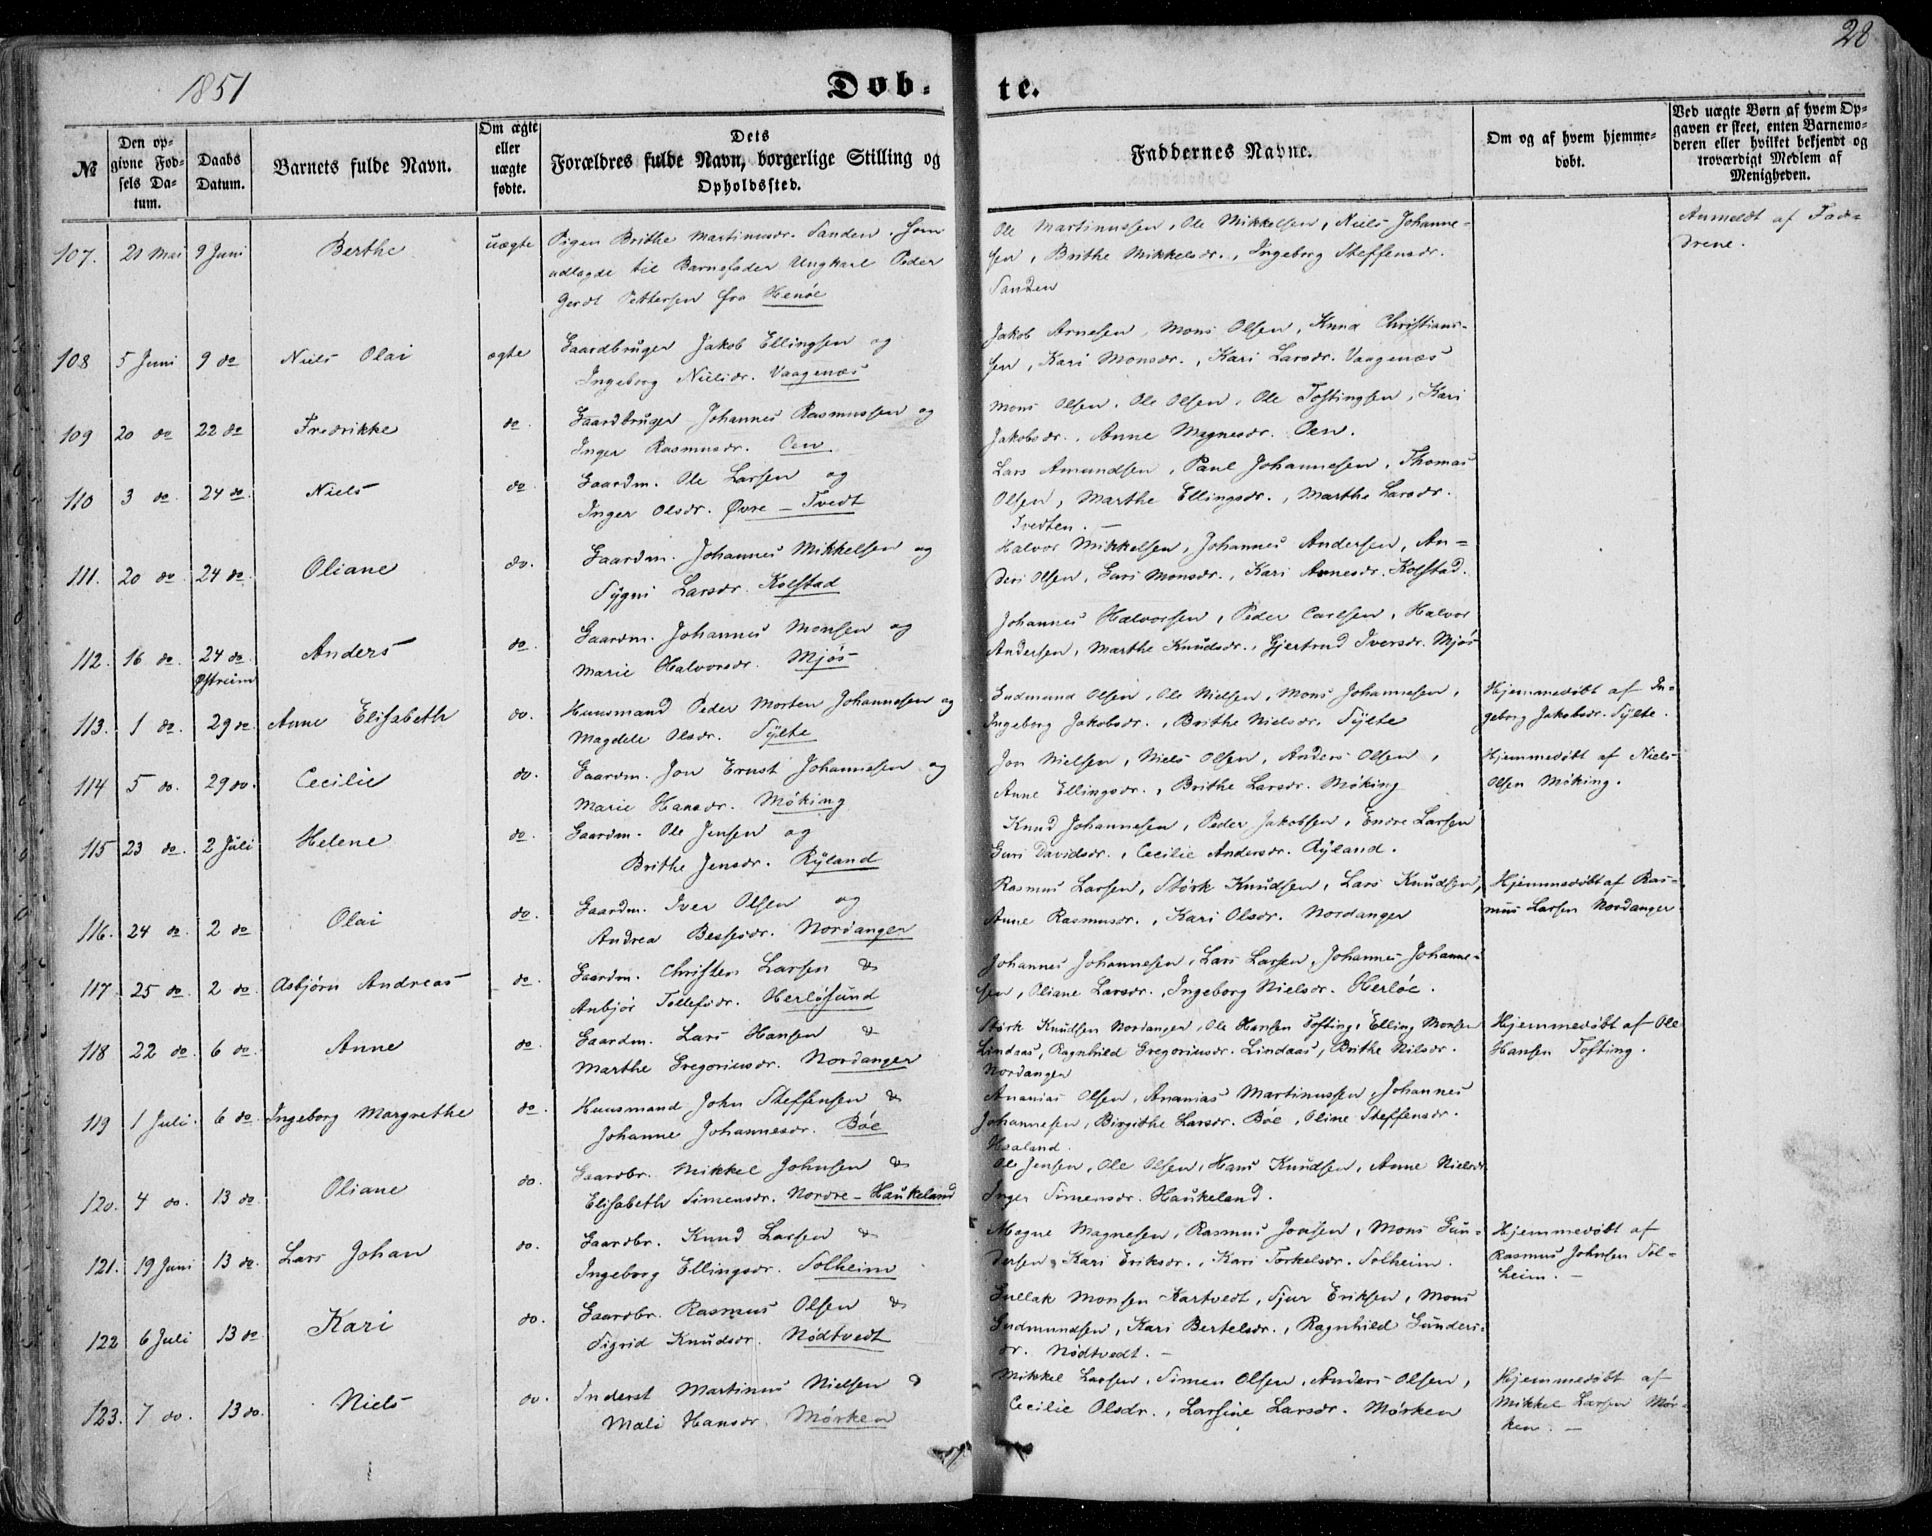 28
1851
Døb-
te.
№
Den op-
givne Fød-
sels Da-
tum.
Daabs
Datum.
Barnets fulde Navn.
Om ægte
eller
uægte
fødte.
Dets
Forældres fulde Navn, borgerlige Stilling og
Opholdssted.
Faddernes Navne.
Om og af hvem hjemme-
døbt.
Ved uægte Børn af hvem Op-
gaven er skeet, enten Barnemo-
deren eller hvilket bekjendt og
troværdigt Medlem af
Menigheden.
107. 21 Mai 9 Juni Berthe uægte Pigen Brithe Martinusdr. Sanden. Som
udlagde til Barnefader Ungkarl Peder
Gerdt Pettersen fra Henøe
Ole Martinussen, Ole Mikkelsen, Niels Johanne-
sen, Brithe Mikkelsdr., Ingeborg Steffensdr.
Sanden
Anmeldt af Fad-
drene.
108 5 Juni 9 do Niels Olai ægte Gaardbruger Jakob Ellingsen og
Ingeborg Nielsdr. Vaagenæs
Jakob Arnesen, Mons Olsen, Knud Christians-
sen, Kari Monsdr., Kari Larsdr. Vaagenæs
109 20 do 22 do Fredrikke do. Gaardbruger Johannes Rasmussen og
Inger Rasmusdr. Oen
Mons Olsen, Ole Olsen, Ole Toftingsen, Kari
Jakobsdr., Anne Magnesdr. Oen.
110 3 do. 24 do. Niels do Gaardm. Ole Larsen og
Inger Olsdr. Øvre - Tvedt
Lars Amundsen, Paul Johannesen, Thomas
Olsen, Marthe Ellingsdr., Marthe Larsdr.
Tvedten. -
111. 20 do 24 do Oliane do. Gaardm. Johannes Mikkelsen og
Sygni Larsdr. Kolstad
Halvor Mikkelsen, Johannes Andersen, An-
ders Olsen, Gari Monsdr., Kari Annesdr. Kolstad.
112. 16 do. 24 do Anders do Gaardm. Johannes Monsen og
Østreim
Marie Halvorsdr. Mjøs
Johannes Halvorsen, Peder Carlsen, Halvor
Andersen, Marthe Knudsdr., Gjertrud Iversdr. Mjøs
113. 1 do. 29 do Anne Elisabeth do. Huusmand Peder Morten Johannesen og
Magdele Olsdr. Sylte
Gudmund Olsen, Ole Nielsen, Mons Johannesen,
Ingeborg Jakobsdr., Brithe Nielsdr. Sylte
Hjemmedøbt af In-
geborg Jakobsdr. Sylte.
114 5 do. 29 do. Cecilie do. Gaardm. Jon Ernst Johannesen og
Marie Hansdr. Møking
Jon Nielsen, Niels Olsen, Anders Olsen,
Anne Ellingsdr., Brithe Larsdr. Møking
Hjemmedøbt af Niels
Olsen Møking.
115 23 do. 2 Juli Helene do. Gaardm. Ole Jensen og
Brithe Jensdr. Ryland
Knud Johannesen, Peder Jakobsen, Endre Larsen
Guri Davidsdr., Cecilie Andersdr. Ryland.
116. 24 do. 2 do Olai do. Gaardm. Iver Olsen og
Andrea Bessesdr. Nordanger
Rasmus Larsen, Størk Knudsen, Lars Knudsen,
Anne Rasmusdr., Kari Olsdr. Nordanger
Hjemmedøbt af Ras-
mus Larsen Nordanger
117. 25 do 2 do. Asbjørn Andreas do. Gaardm. Christen Larsen &
Anbjør Tollefsdr. Herløsund
Johannes Johannesen, Lars Larsen, Johannes Johanne-
sen, Oliane Larsdr., Ingeborg Nielsdr. Herløe.
118 22 do. 6 do. Anne do. Gaardm. Lars Hansen &
Marthe Gregoriusdr. Nordanger
Størk Knudsen Nordanger, Ole Hansen Tofting, Elling Monsen
Lindaas, Ragnhild Gregoriusdr. Lindaas, Brithe Nilsdr.
Nordanger
Hjemmedøbt af Ole
Hansen Tofting.
119 1 Juli. 6 do. Ingeborg Margrethe do. Huusmand John Steffensen &
Johanne Johannesdr. Bøe
Ananias Olsen, Ananias Martinussen, Johannes
Johannesen, Birgithe Larsdr. Bøe, Oline Steffensdr.
Haaland.
120. 4 do. 13 do Oliane do. Gaardbr. Mikkel Johnsen &
Elisabeth Simensdr. Nordre - Haukeland
Ole Jensen, Ole Olsen, Hans Knudsen, Anne Nielsdr
Inger Simensdr. Haukeland.
121. 19 Juni 13 do. Lars Johan do. Gaardbr. Knud Larsen &
Ingeborg Ellingsdr. Solheim
Magne Magnesen, Rasmus Jonsen, Mons Gun-
dersen, Kari Eriksdr., Kari Torkelsdr. Solheim.
Hjemmedøbt af
Rasmus Johnsen Sol-
heim. -
122 6 Juli 13 do Kari do. Gaardbr. Rasmus Olsen &
Sigrid Knudsdr. Nødtvedt
Gullak Monsen Kartvedt, Sjur Eriksen, Mons
Gudmundsen, Kari Bertelsdr., Ragnhild Gunders-
dr. Nødtvedt. -
123. 7 do. 13 do. Niels do. Inderst Martinus Nielsen &
Mali Hansdr. Mørken
Mikkel Larsen, Simen Olsen, Anders Olsen,
Cecilie Olsdr., Larsine Larsdr. Mørken
Hjemmedøbt af
Mikkel Larsen Mør-
ken. -